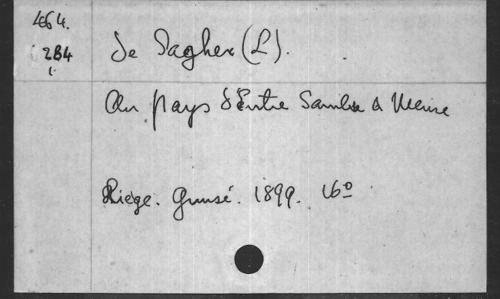 464.
De Dagher (L).
284
Au pays d'Entre Sambre & Meuse
Liège. Gnusé. 1899. 16º